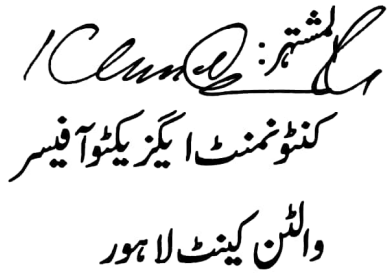 المشتہر:
کنٹونمنٹ ایگزیکٹو آفیسر
والٹن کینٹ لاہور